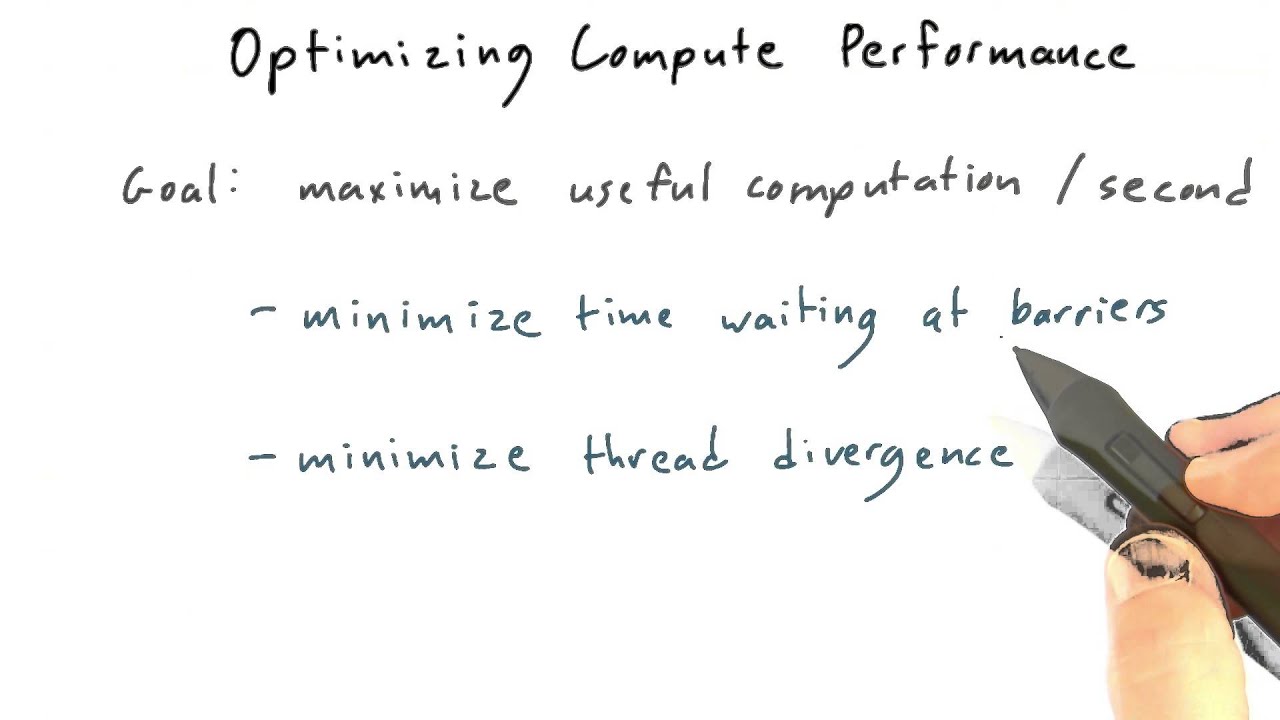 Optimizing Compute Performance
Goal: maximize useful computation / second
- minimize time waiting at barriers
- minimize thread divergence